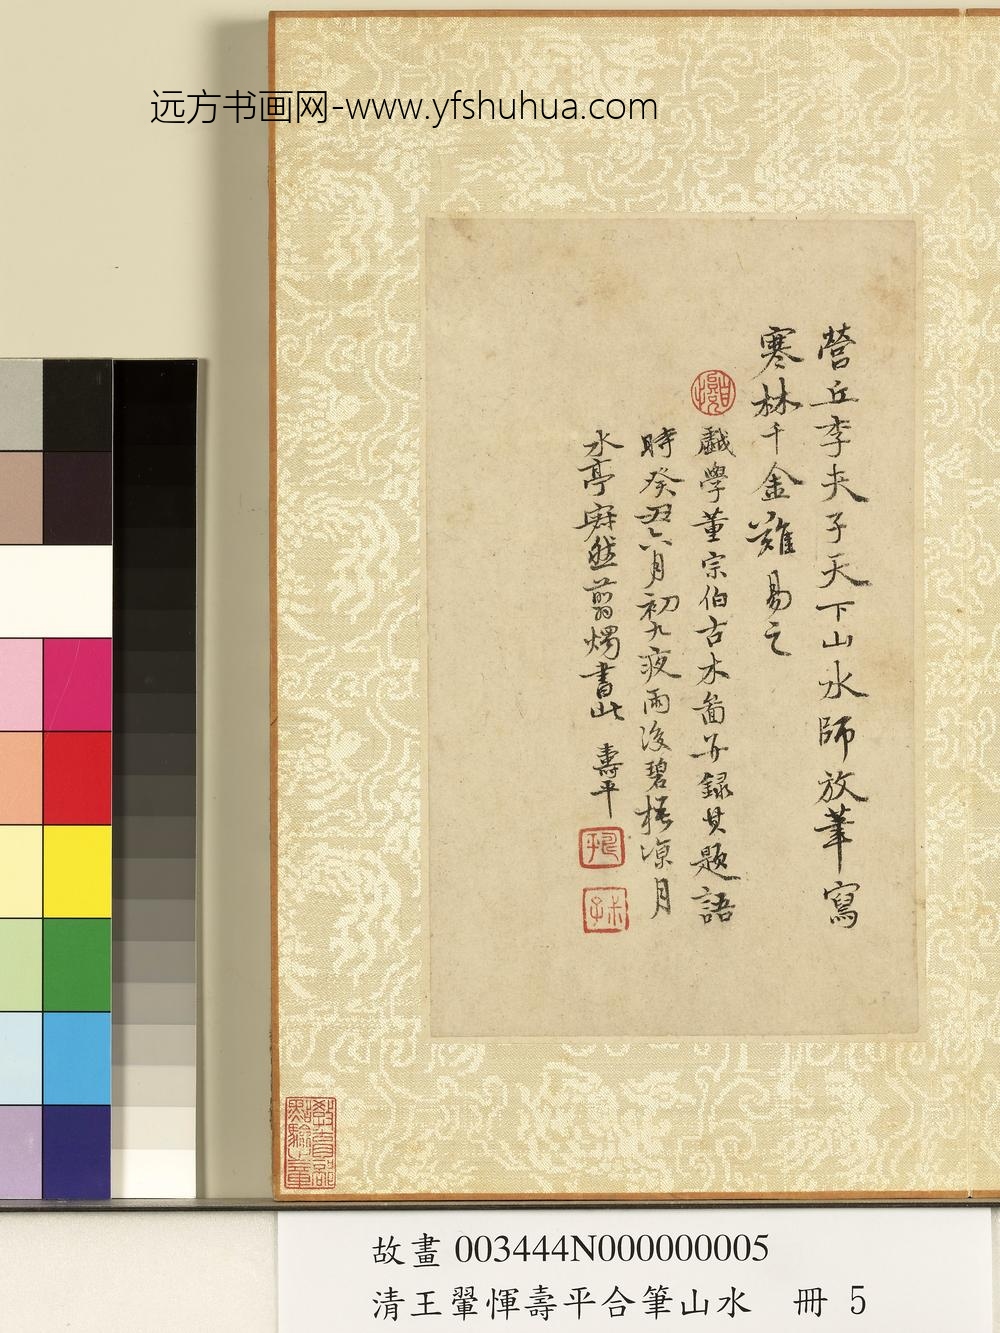 远方书画网-www.yfshuhua.com
營丘李夫子天下山水師放筆寫
寒林千金難易之
戲學董宗伯古木圖并錄其題語
時癸丑六月初九夜雨後碧梧涼月
水亭寂然翦燭書此 壽平
教育部
點驗之章
故畫 003444N000000005
清王翬惲壽平合筆山水 冊 5